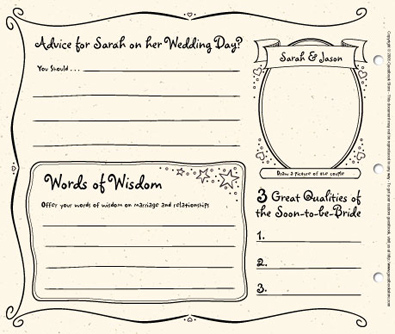 Advice for Sarah on her Wedding Day?
You Should ...
Sarah & Jason
Draw a picture of our couple
Words of Wisdom
Offer your words of wisdom on marriage and relationships
3 Great Qualities of
the Soon-to-be-Bride
1.
2.
3.